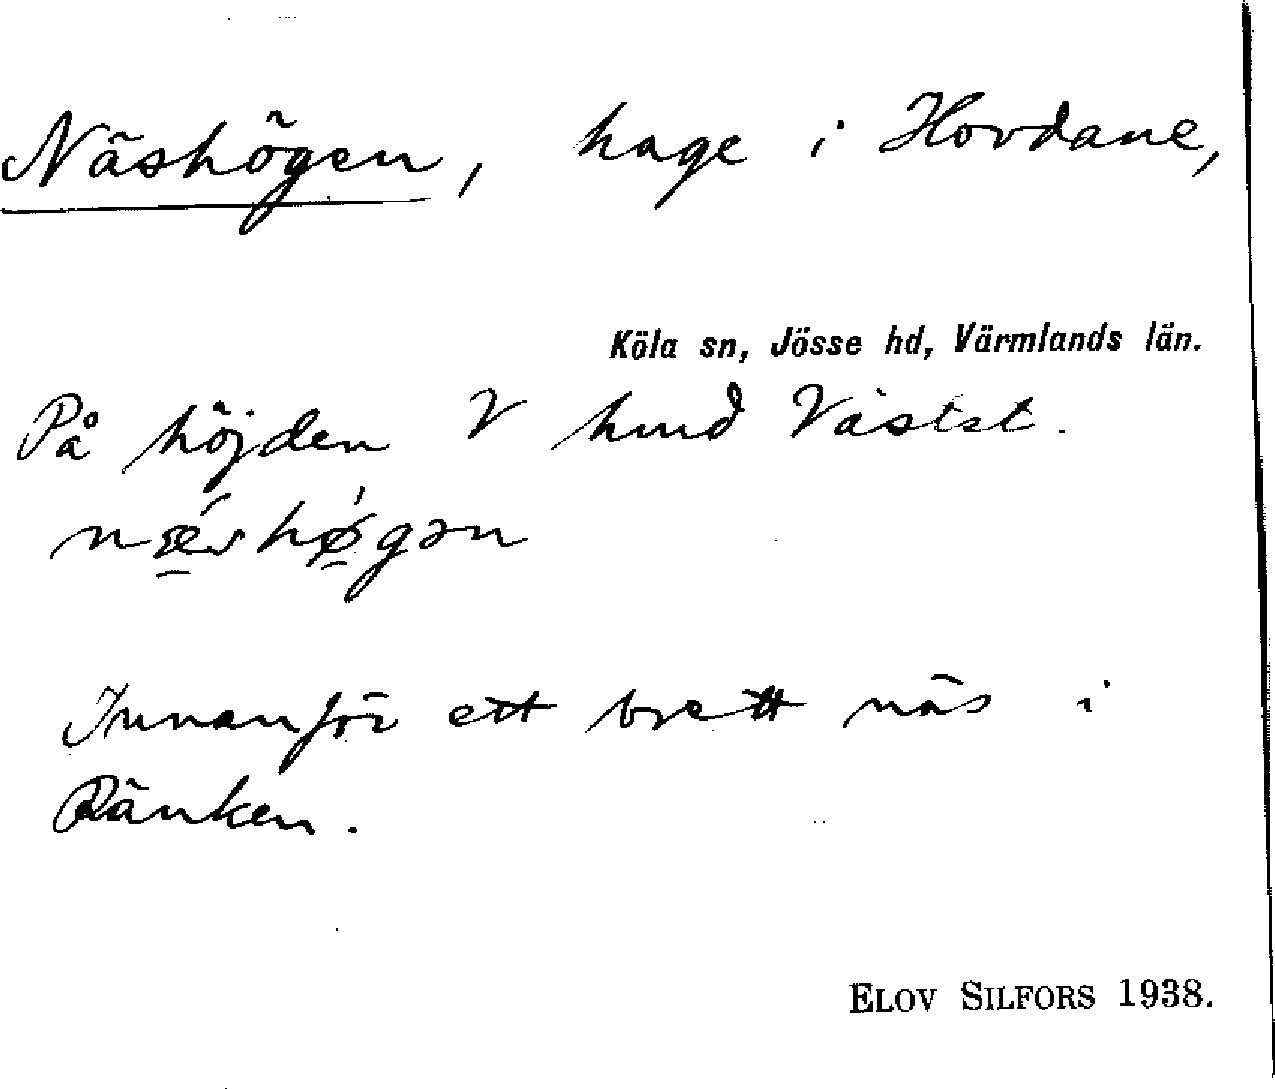 Näshögen, hage i Hovdane,
Köla sn, Jösse hd, Värmlands län.
På höjden V hmd Västst.
nǽ̲shǿ̲gən
Innanför ett brett näs i
Ränken.
ELOV SILFORS 1938.